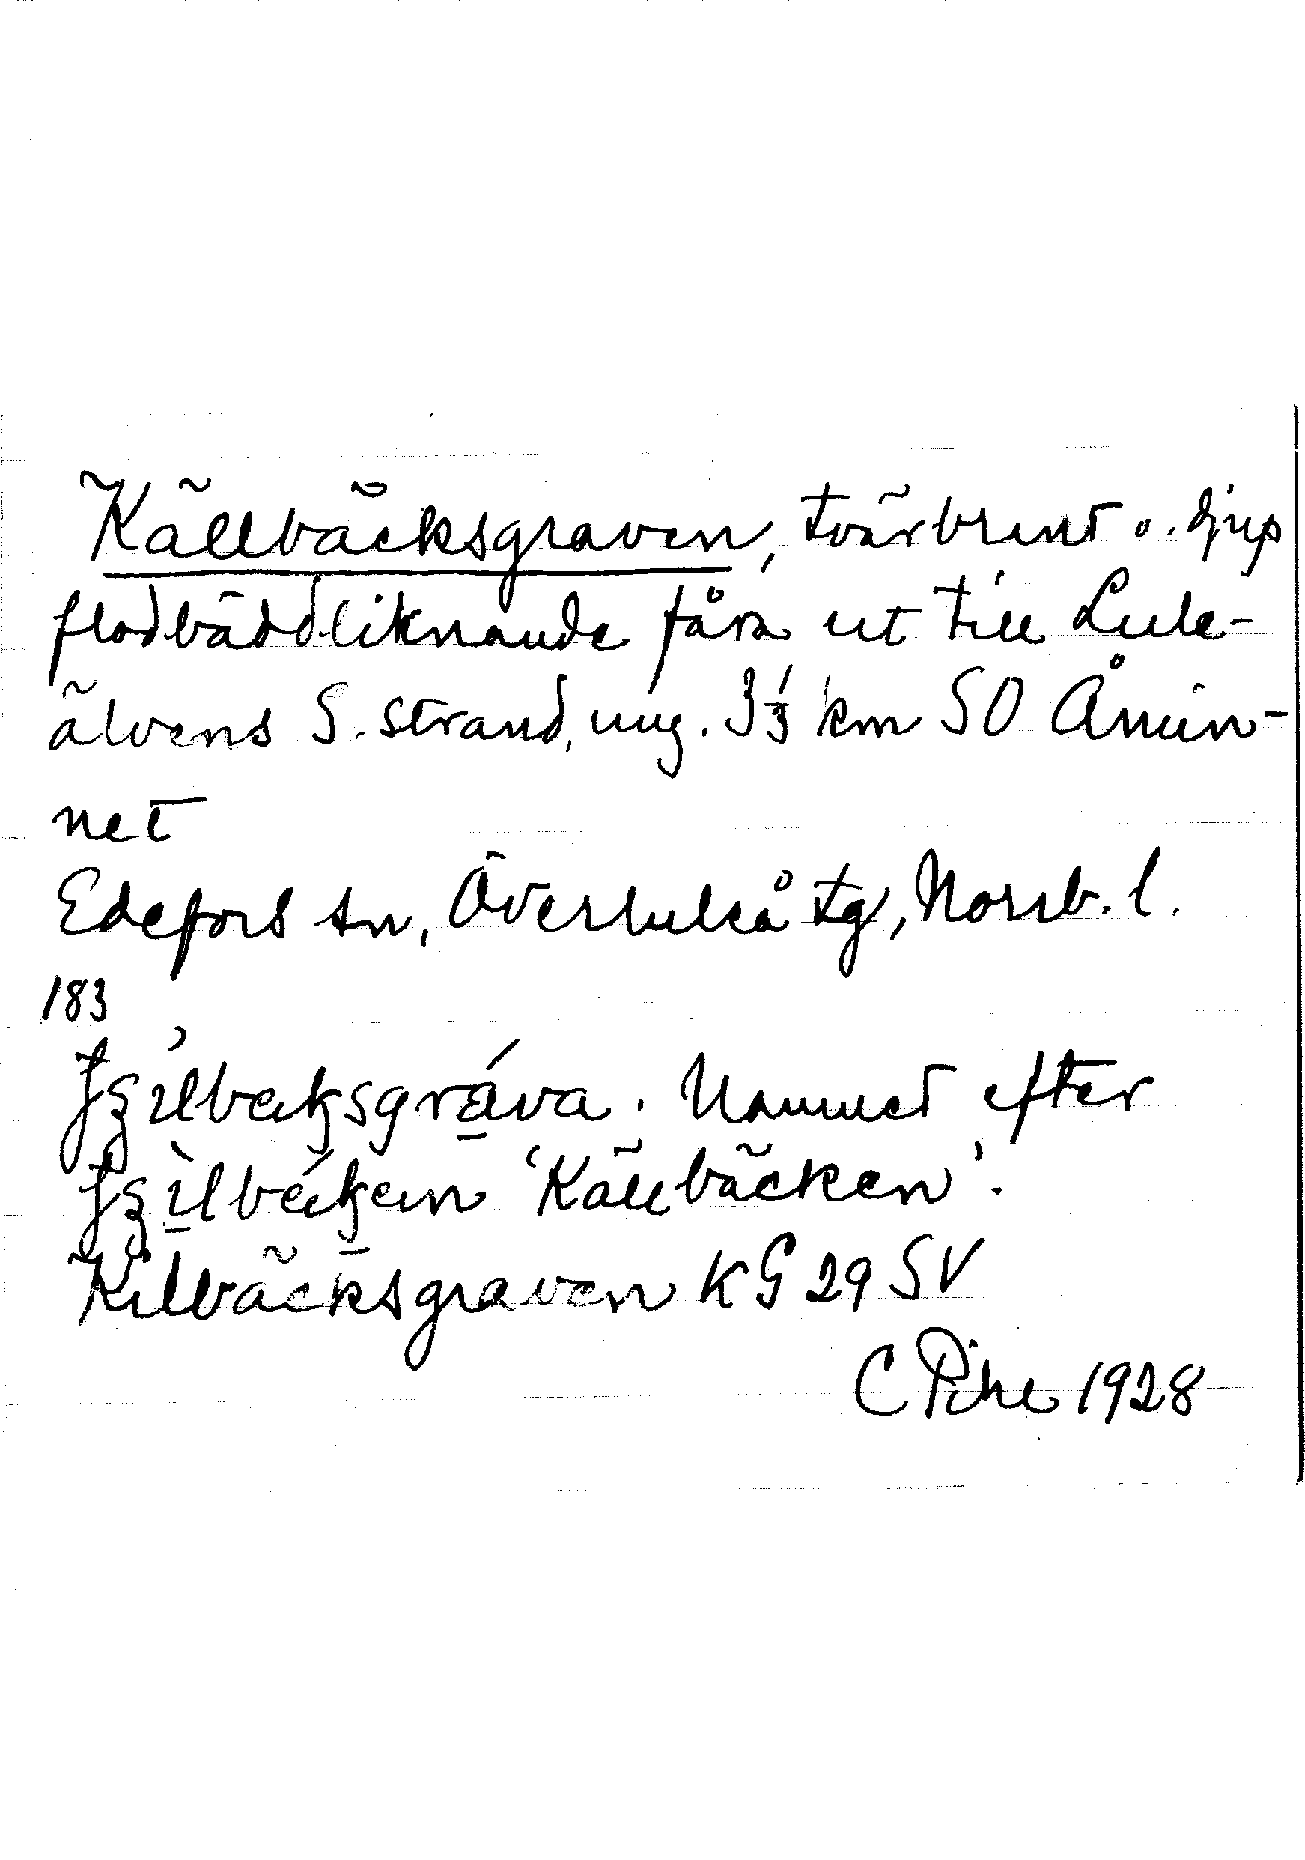 Källbäcksgraven, tvärbrant o. djup
flodbäddliknande fåra ut till Lule-
älvens S. strand, ung. 3 1/3 km SO Åmin-
net
Edefors sn, Överluleå tg, Norrb. l.
183
Namnet efter
'Källbäcken'.
Kilbäcksgraven KG 29 SV
C Pihl 1928